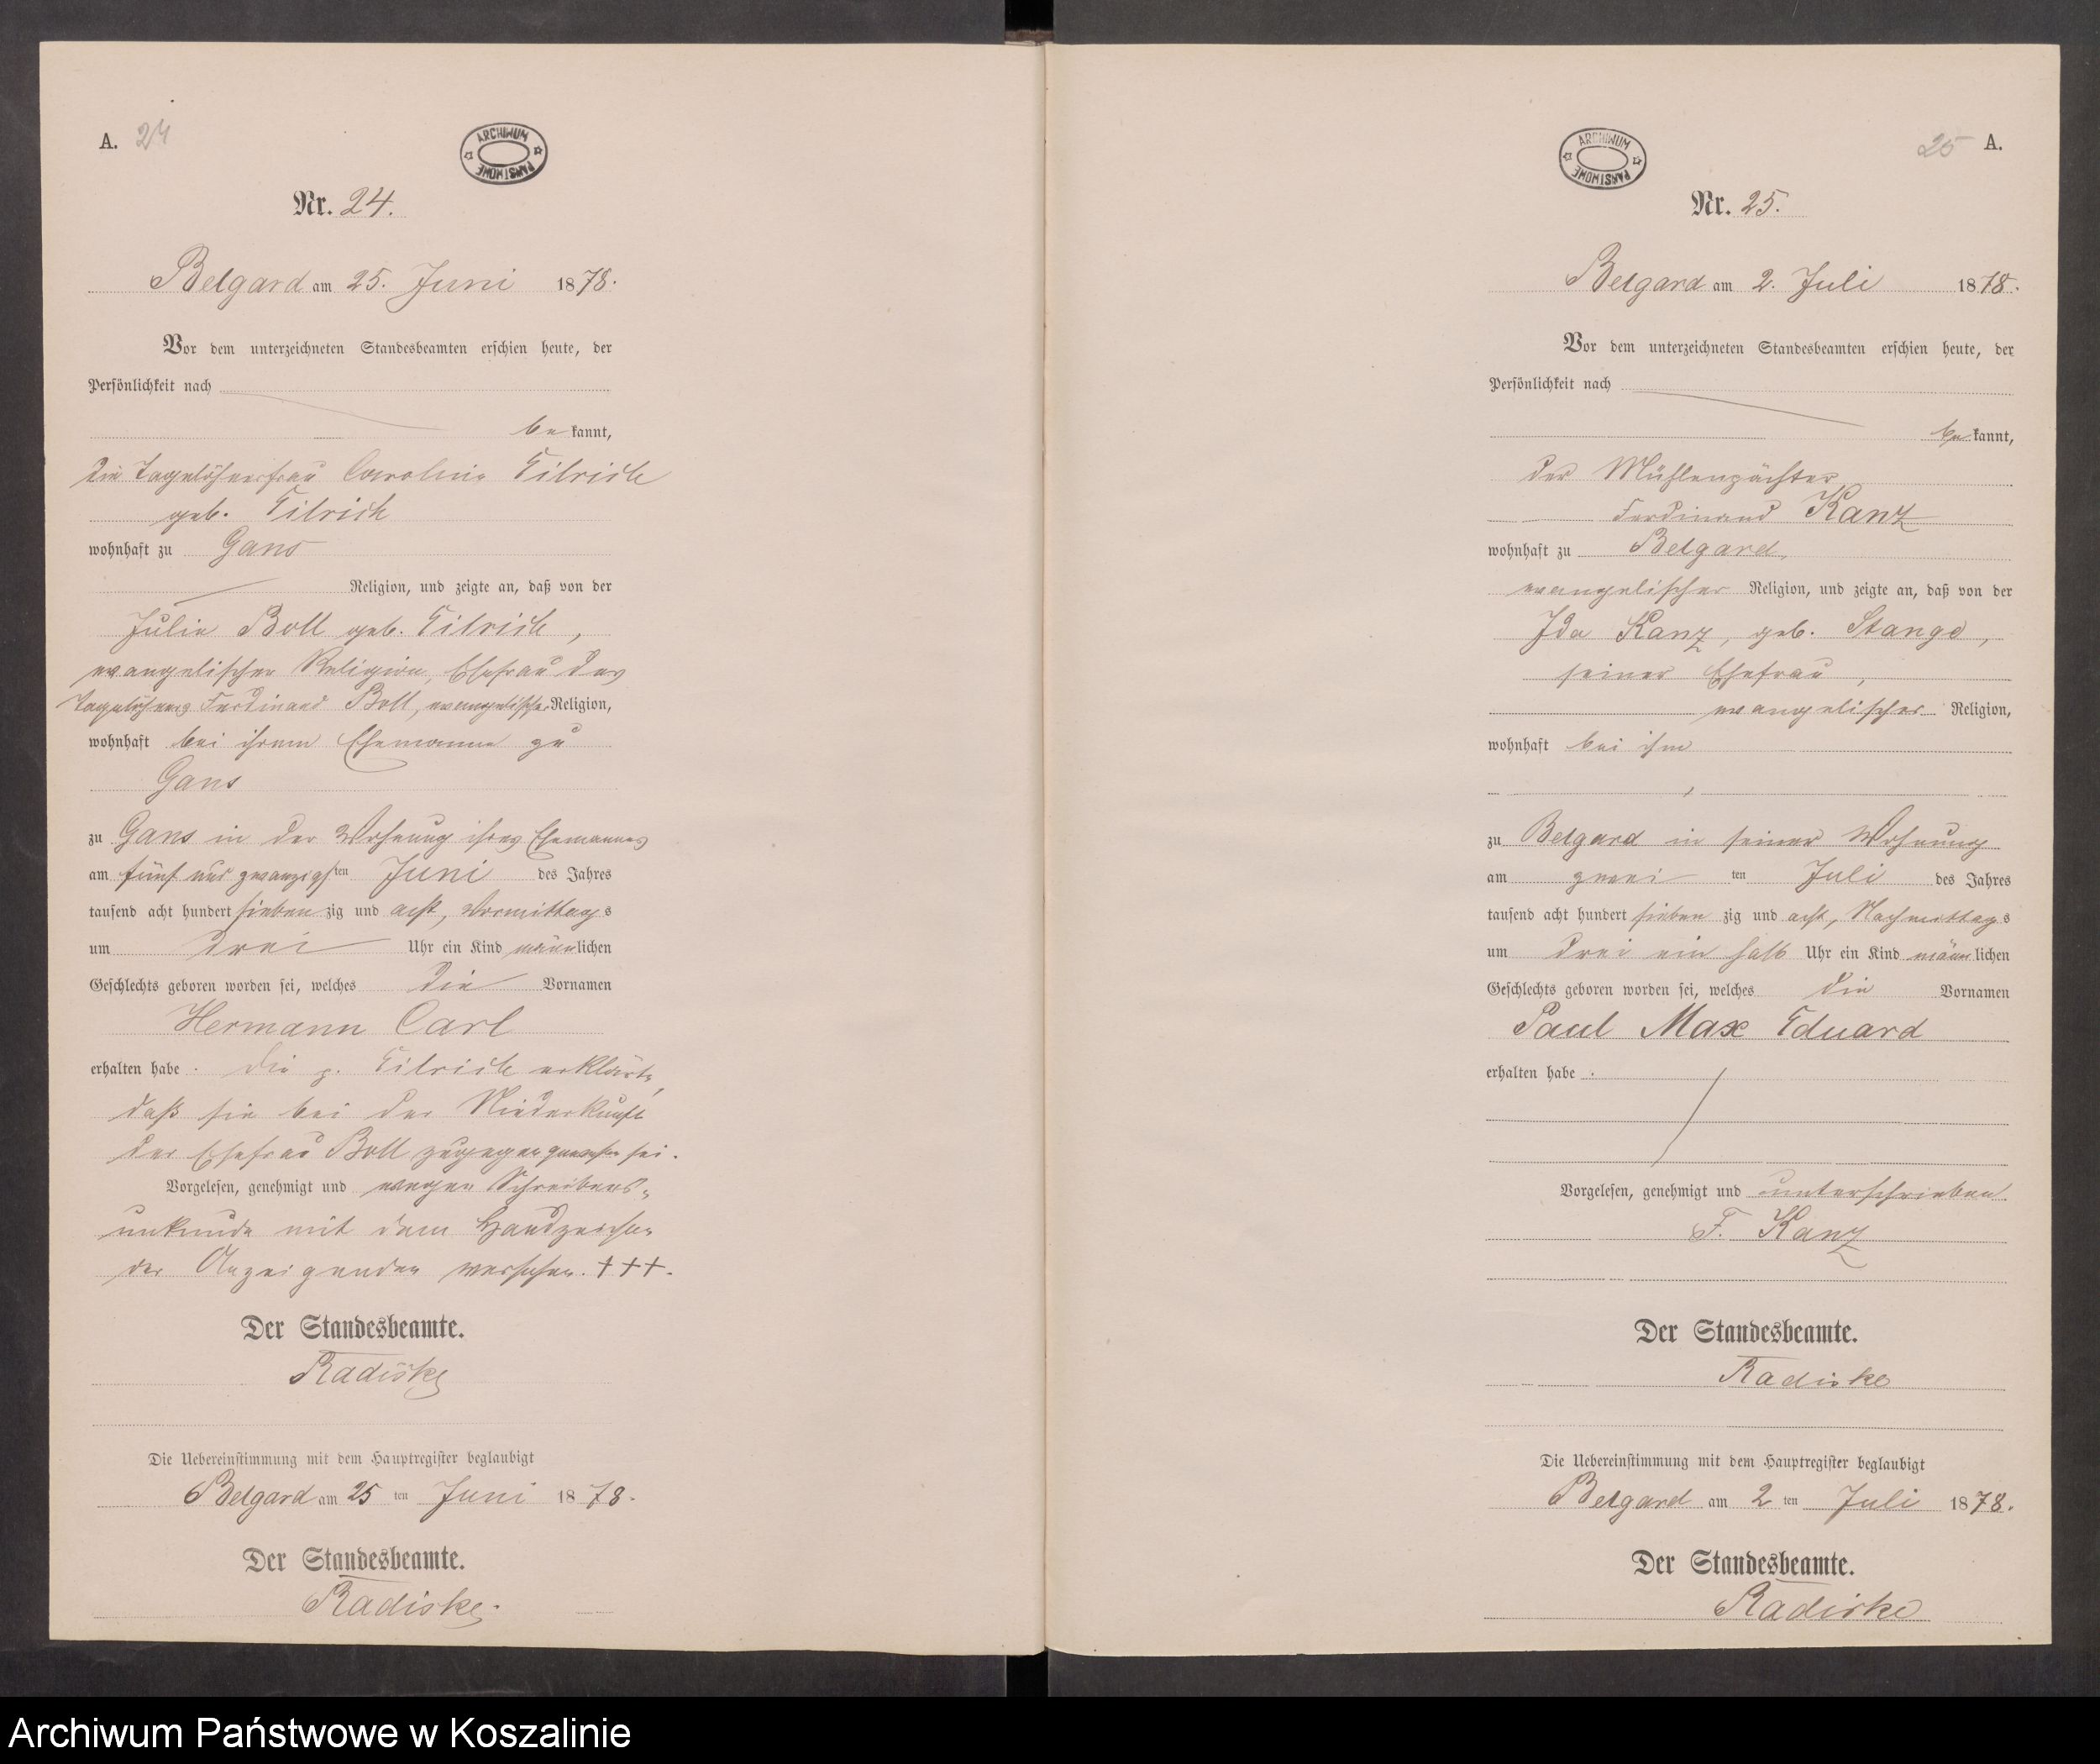 A. 24
ARCHIWUM PAŃSTWOWE
Nr. 24.
Belgard am 25. Juni 1878.
Vor dem unterzeichneten Standesbeamten erschien heute, der
Persönlichkeit nach
bekannt,
die Tagelöhnerfrau Caroline
geb.
wohnhaft zu Gans
Religion, und zeigte an, daß von der
Julie Boll geb.
evangelischer Religion, Ehefrau des
Tagelöhners Ferdinand Boll, evangelischer Religion,
wohnhaft bei ihrem Ehemanne zu
Gans
zu Gans in der Wohnung ihres Ehemannes
am fünf und zwanzigsten Juni des Jahres
tausend acht hundert siebenzig und acht, Vormittags
um drei Uhr ein Kind männlichen
Geschlechts geboren worden sei, welches die Vornamen
Hermann Carl
erhalten habe. Die erklärte,
daß sie bei der Niederkunft
der Ehefrau Boll zugegen gewesen sei.
Vorgelesen, genehmigt und wegen Schreibens-
unkunde mit dem Handzeichen
der Anzeigenden versehen. +++.
Der Standesbeamte.
Radiske
Die Uebereinstimmung mit dem Hauptregister beglaubigt
Belgard am 25 ten Juni 1878.
Der Standesbeamte.
Radiske.
25 A.
ARCHIWUM PAŃSTWOWE
Nr. 25.
Belgard am 2. Juli 1878.
Vor dem unterzeichneten Standesbeamten erschien heute, der
Persönlichkeit nach
bekannt,
der Mühlenpächter
Ferdinand Kanz
wohnhaft zu Belgard,
evangelischer Religion, und zeigte an, daß von der
Ida Kanz, geb. Stange,
seiner Ehefrau,
evangelischer Religion,
wohnhaft bei ihm
,
zu Belgard in seiner Wohnung
am zwei ten Juli des Jahres
tausend acht hundert siebenzig und acht, Nachmittags
um drei ein halb Uhr ein Kind männlichen
Geschlechts geboren worden sei, welches die Vornamen
Paul Max Eduard
erhalten habe.
Vorgelesen, genehmigt und unterschrieben.
F. Kanz
Der Standesbeamte.
Radiske
Die Uebereinstimmung mit dem Hauptregister beglaubigt
Belgard am 2 ten Juli 1878.
Der Standesbeamte.
Radiske
Archiwum Państwowe w Koszalinie